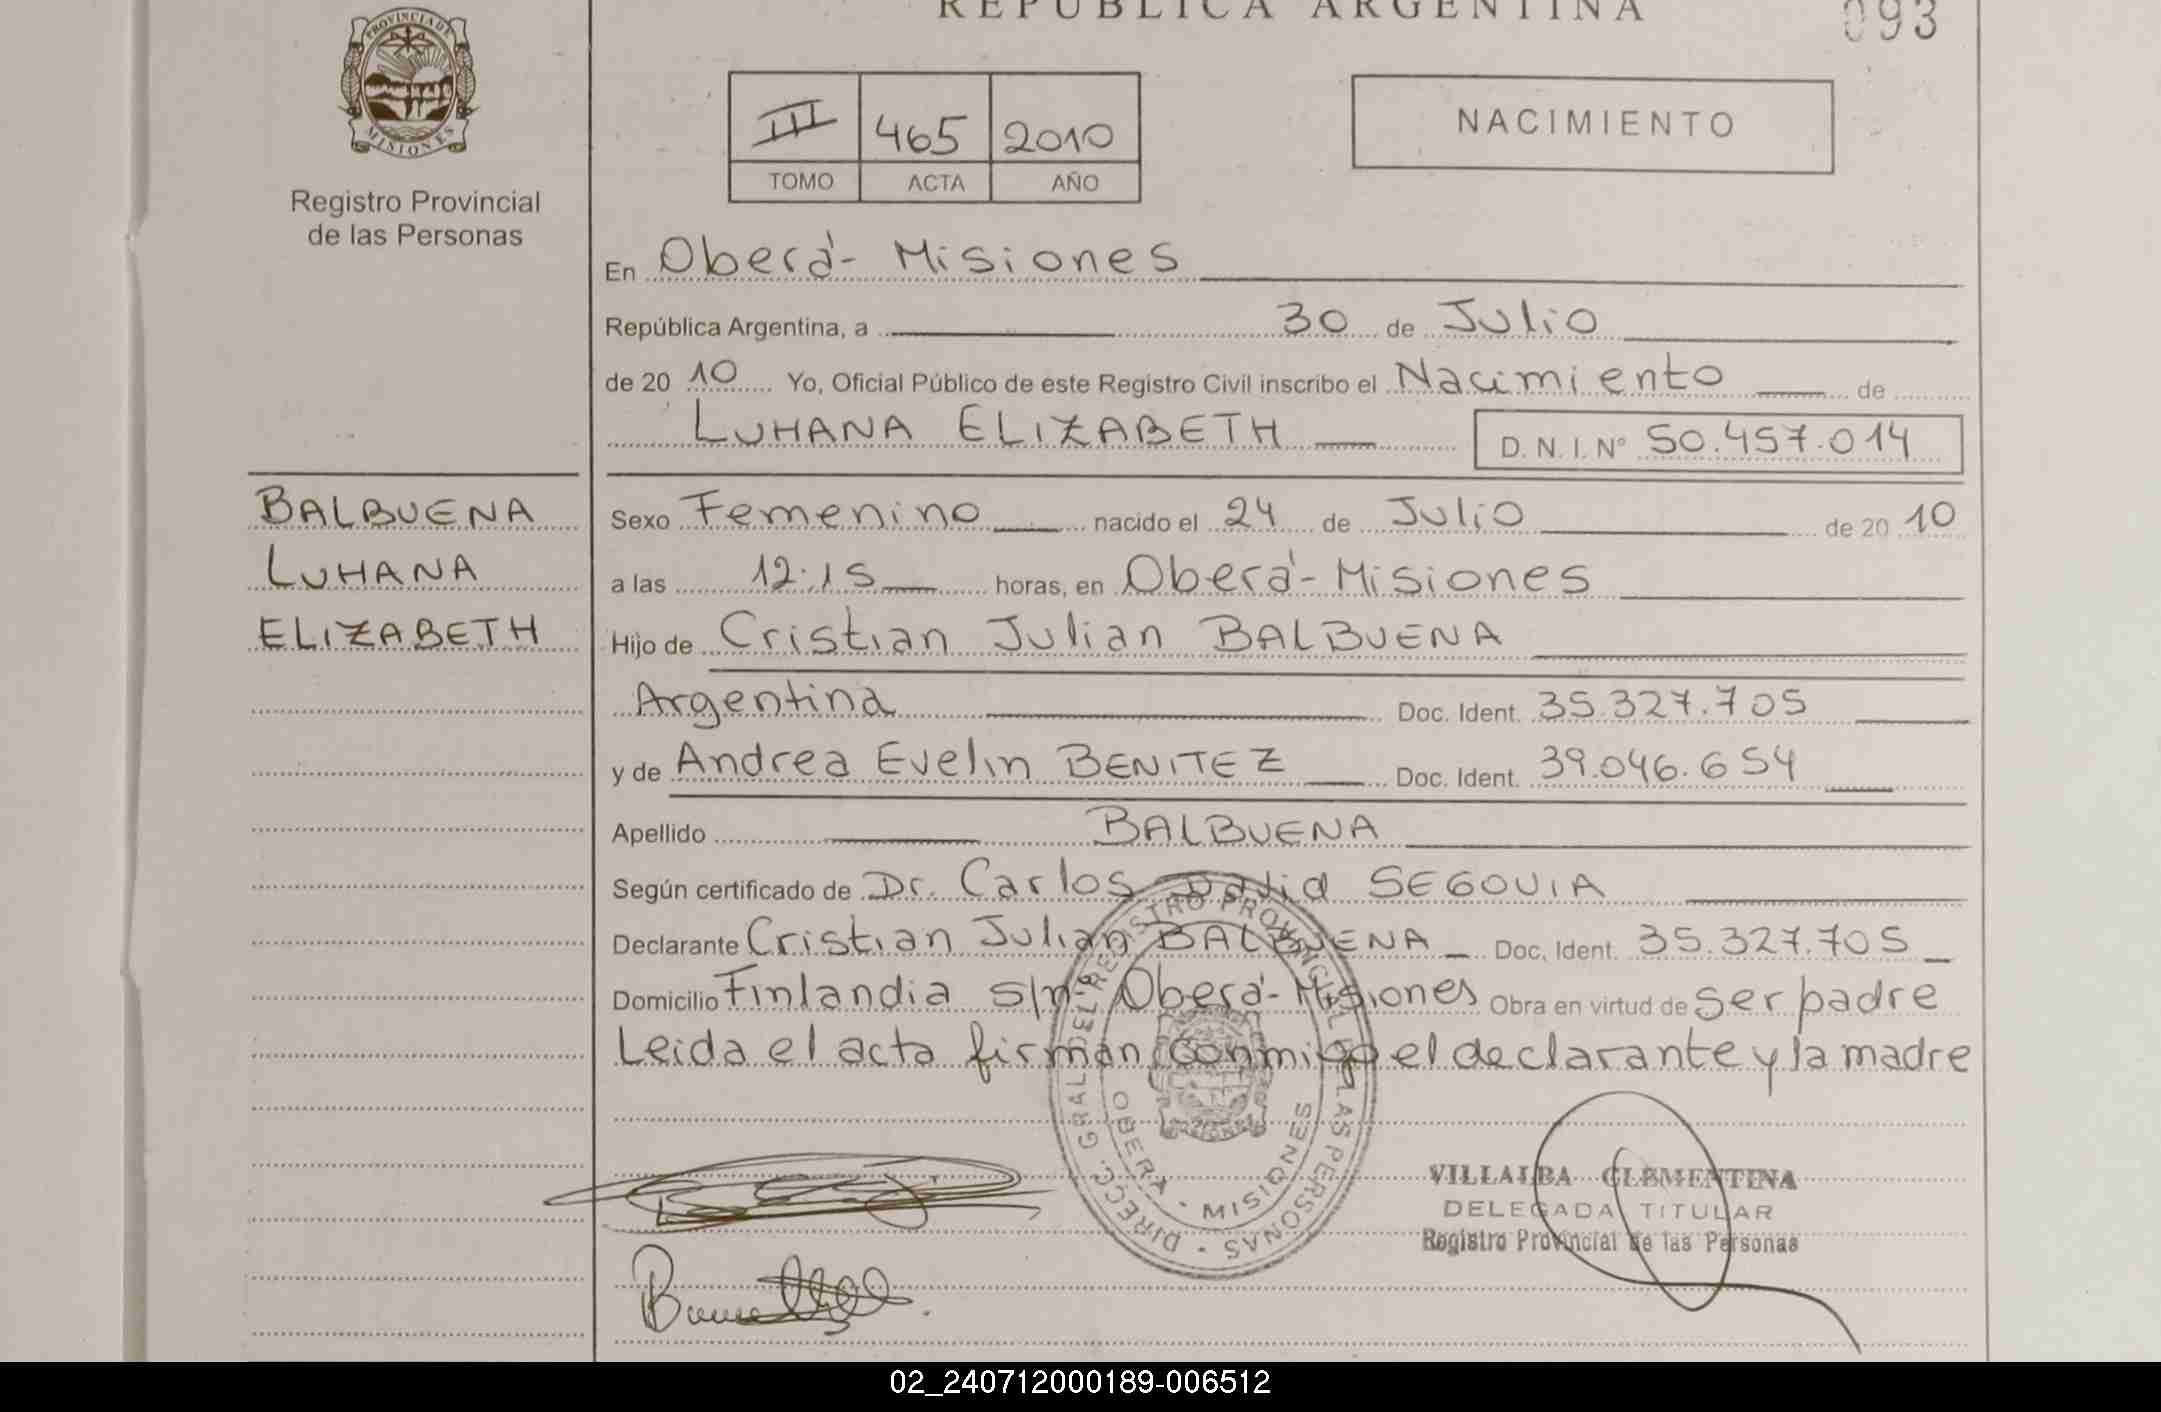 REPUBLICA ARGENTINA
093
PROVINCIA DE
MISIONES
Registro Provincial
de las Personas
III 465 2010
TOMO ACTA AÑO
NACIMIENTO
En Oberá - Misiones
República Argentina, a 30 de Julio
de 20 10 Yo, Oficial Público de este Registro Civil inscribo el Nacimiento de
LUHANA ELIZABETH D. N. I. Nº 50.457.014
BALBUENA
LUHANA
ELIZABETH
Sexo Femenino nacido el 24 de Julio de 20 10
a las 12:15 horas, en Oberá - Misiones
Hijo de Cristian Julian BALBUENA
Argentina Doc. Ident. 35.327.705
y de Andrea Evelin BENITEZ Doc. Ident. 39.046.654
Apellido BALBUENA
Según certificado de Dr. Carlos David SEGOVIA
Declarante Cristian Julian BALBUENA Doc. Ident. 35.327.705
Domicilio Finlandia s/nº Oberá - Misiones Obra en virtud de ser padre
Leida el acta firman conmigo el declarante y la madre
DIRECC. GRAL DEL REGISTRO PROVINCIAL DE LAS PERSONAS
OBERA - MISIONES
VILLALBA CLEMENTINA
DELEGADA TITULAR
Registro Provincial de las Personas
02_240712000189-006512